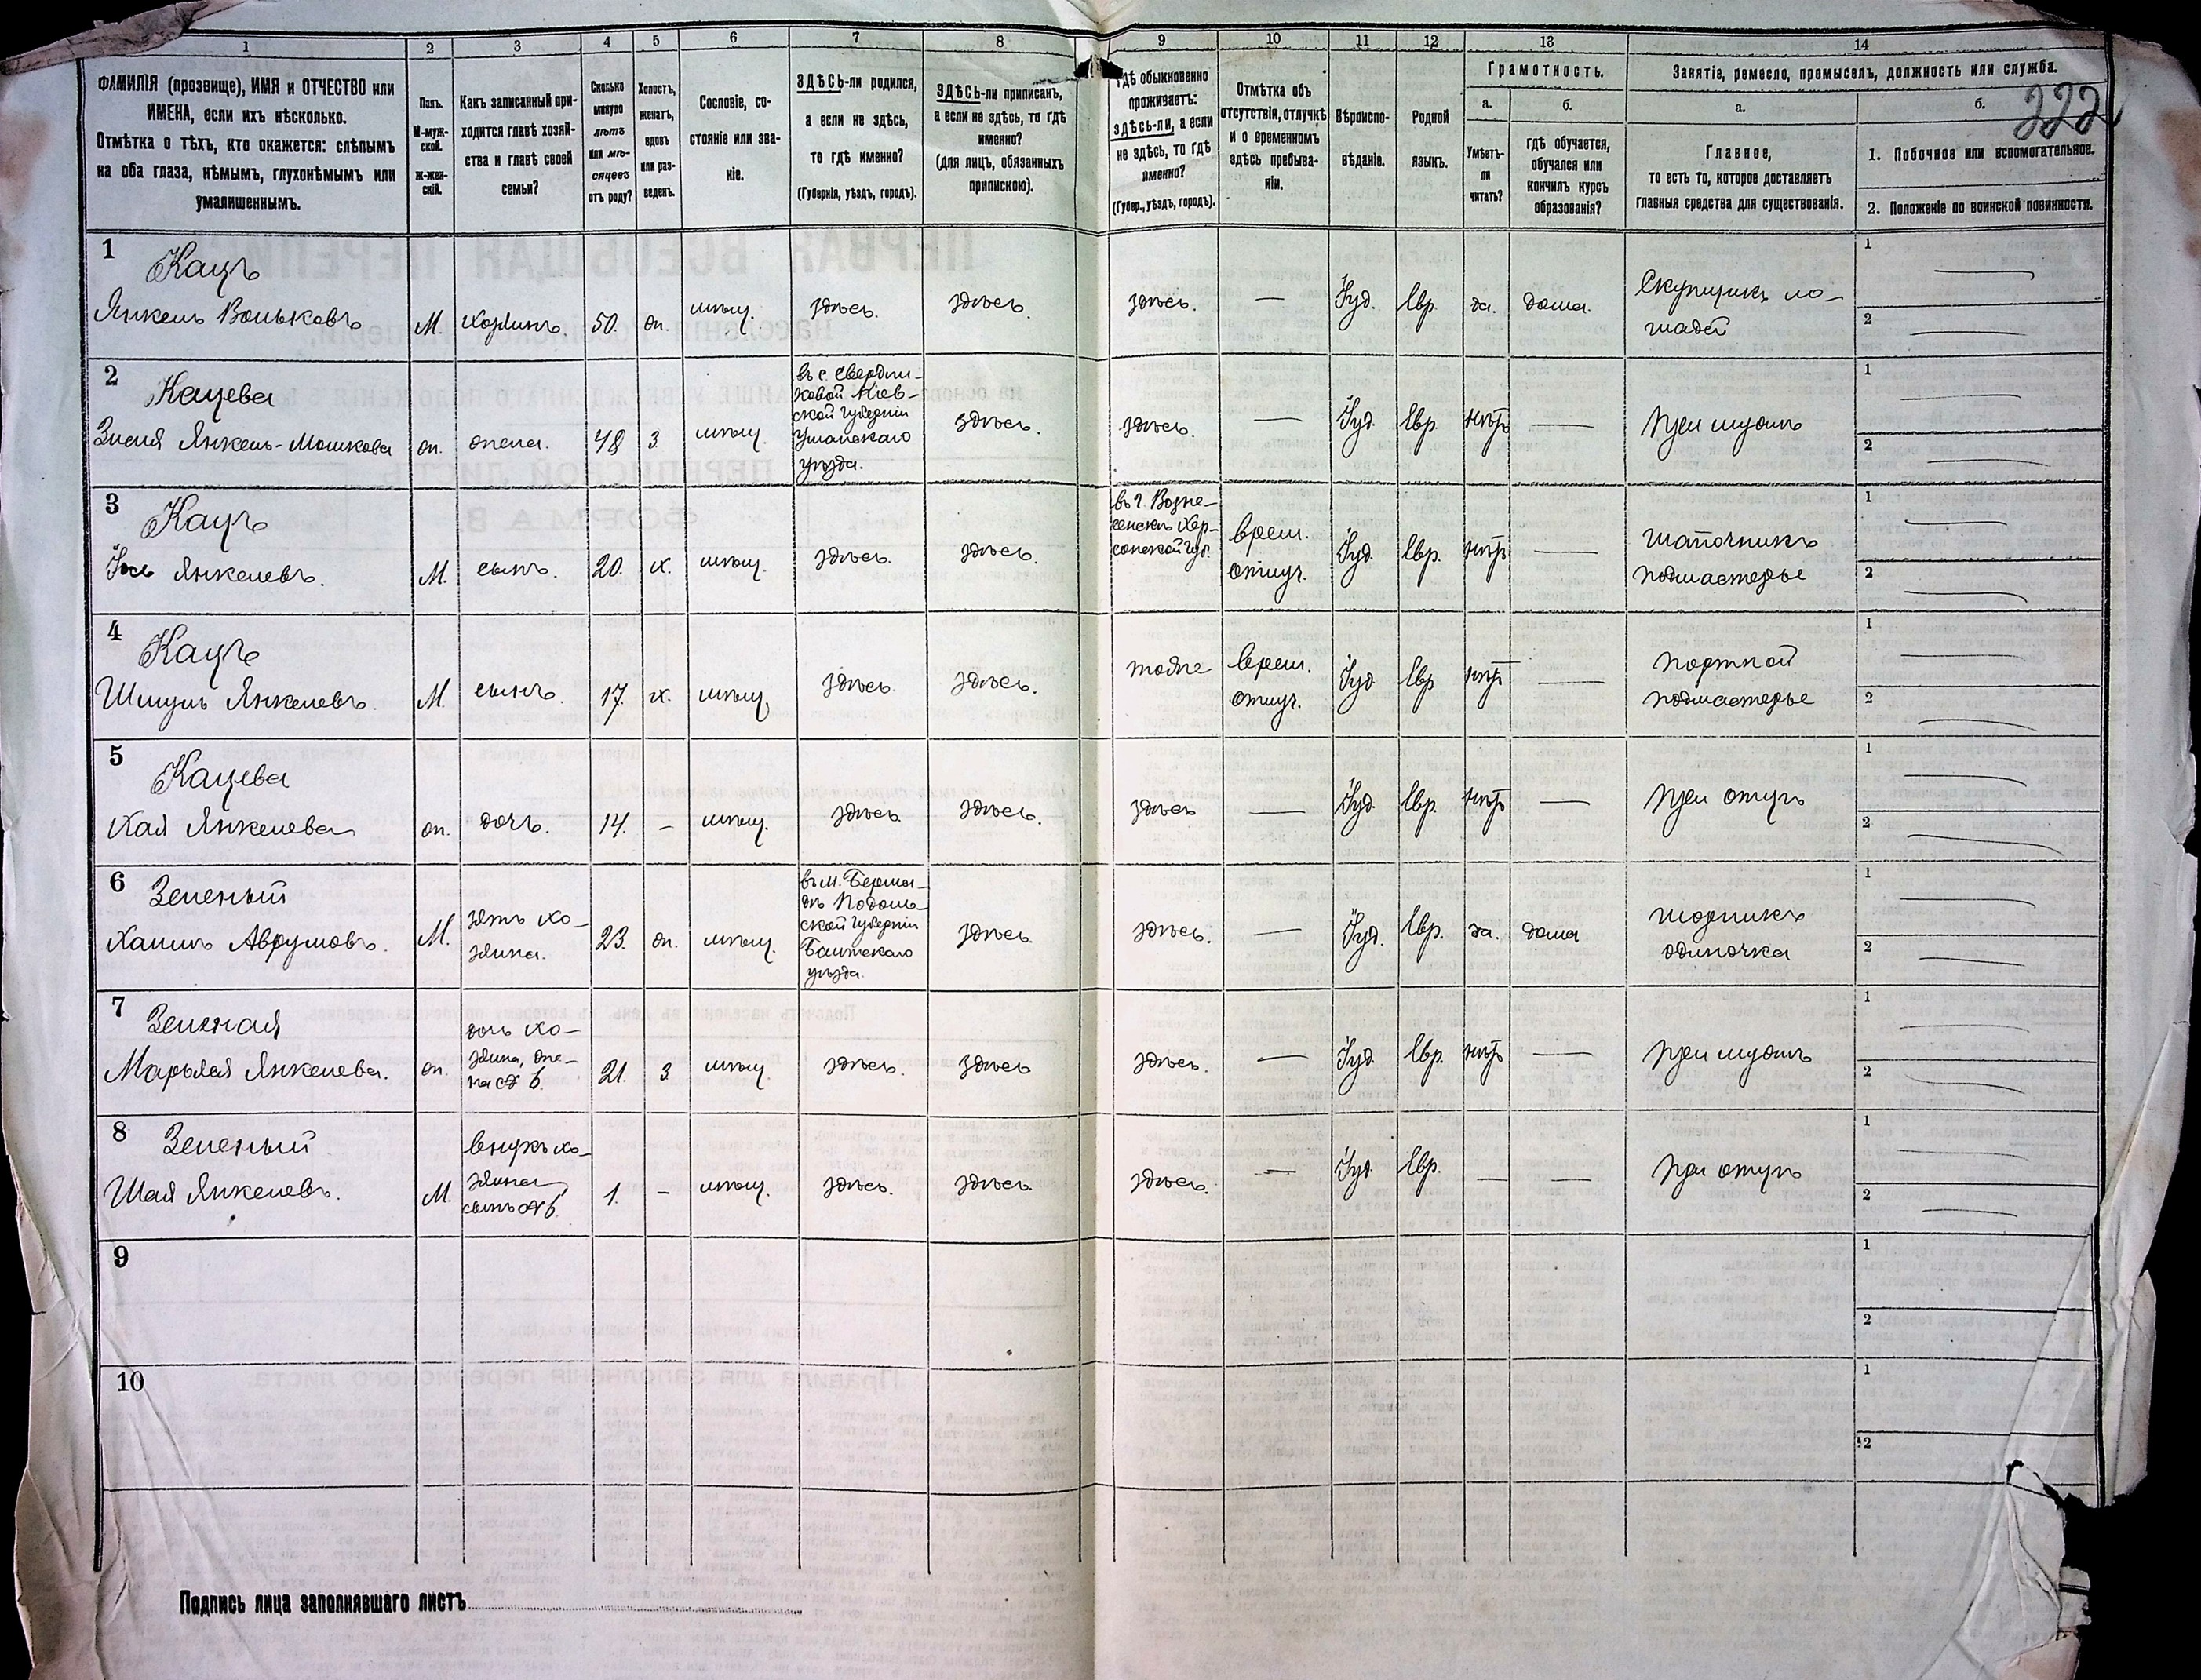 1 2 3 4 5 6 7 8 9 10 11 12 13 14
222
ФАМИЛІЯ (прозвище), ИМЯ и ОТЧЕСТВО или
ИМЕНА, если ихъ нѣсколько.
Отмѣтка о тѣхъ, кто окажется: слѣпымъ
на оба глаза, нѣмымъ, глухонѣмымъ или
умалишеннымъ.
Полъ.
М-муж-
ской.
ж-жен-
скій.
Какъ записанный при-
ходится главѣ хозяй-
ства и главѣ своей
семьи?
Сколько
минуло
лѣтъ
или мѣ-
сяцевъ
отъ роду?
Холостъ,
женатъ,
вдовъ
или раз-
веденъ.
Сословіе, со-
стояніе или зва-
ніе.
ЗДѢСЬ-ли родился,
а если не здѣсь,
то гдѣ именно?
(Губернія, уѣздъ, городъ).
ЗДѢСЬ-ли приписанъ,
а если не здѣсь, то гдѣ
именно?
(для лицъ, обязанныхъ
припискою).
Гдѣ обыкновенно
проживаетъ:
здѣсь-ли, а если
не здѣсь, то гдѣ
именно?
(Губер., уѣздъ, городъ).
Отмѣтка объ
отсутствіи, отлучкѣ
и о временномъ
здѣсь пребыва-
ніи.
Вѣроиспо-
вѣданіе.
Родной
языкъ.
Грамотность.
а.
Умѣетъ-
ли
читать?
б.
гдѣ обучается,
обучался или
кончилъ курсъ
образованія?
Занятіе, ремесло, промыселъ, должность или служба.
а.
Главное,
то есть то, которое доставляетъ
главныя средства для существованія.
б.
1. Побочное или вспомогательное.
2. Положеніе по воинской повинности.
1
Кацъ
Янкель Вольковъ
М.
хозяинъ.
50.
жн.
мѣщ.
здѣсь.
здѣсь.
здѣсь.
—
Іуд.
Евр.
да.
дома.
Скупщикъ ло-
шадей
1
2
2
Кацева
Злотя Янкель-Мошкова
жн.
жена.
48
з
мѣщ.
въ с. Свердли-
ковой Кіев-
ской губерніи
Уманскаго
уѣзда.
здѣсь.
здѣсь.
—
Іуд.
Евр.
нѣтъ
—
при мужѣ
1
2
3
Кацъ
Іось Янкелевъ.
М.
сынъ.
20.
х.
мѣщ.
здѣсь.
здѣсь.
въ г. Возне-
сенскѣ Хер-
сонской губ.
врем.
отлуч.
Іуд.
Евр.
нѣтъ
—
шапочникъ
подмастерье
1
2
4
Кацъ
Шмуль Янкелевъ.
М.
сынъ.
17.
х.
мѣщ.
здѣсь.
здѣсь.
тоже
врем.
отлуч.
Іуд
Евр
нѣтъ
—
портной
подмастерье
1
2
5
Кацева
Хая Янкелева
жн.
дочь.
14.
–
мѣщ.
здѣсь.
здѣсь.
здѣсь
—
Іуд.
Евр.
нѣтъ
—
при отцѣ
1
2
6
Зеленый
Хаимъ Аврумовъ.
М.
зять хо-
зяина.
23.
жн.
мѣщ.
въ м. Берша-
дь Подоль-
ской губерніи
Балтскаго
уѣзда.
здѣсь.
здѣсь.
—
Іуд.
Евр.
да.
дома
шорникъ
одиночка
1
2
7
Зеленая
Марьяся Янкелева.
жн.
дочь хо-
зяина, же-
на № 6.
21.
з
мѣщ.
здѣсь.
здѣсь
здѣсь.
—
Іуд.
Евр.
нѣтъ
—
при мужѣ
1
2
8
Зеленый
Шая Янкелевъ.
М.
внукъ хо-
зяина,
сынъ № 6.
1.
–
мѣщ.
здѣсь.
здѣсь.
здѣсь.
—
Іуд.
Евр.
—
—
при отцѣ
1
2
9
1
2
10
1
2
Подпись лица заполнявшаго листъ